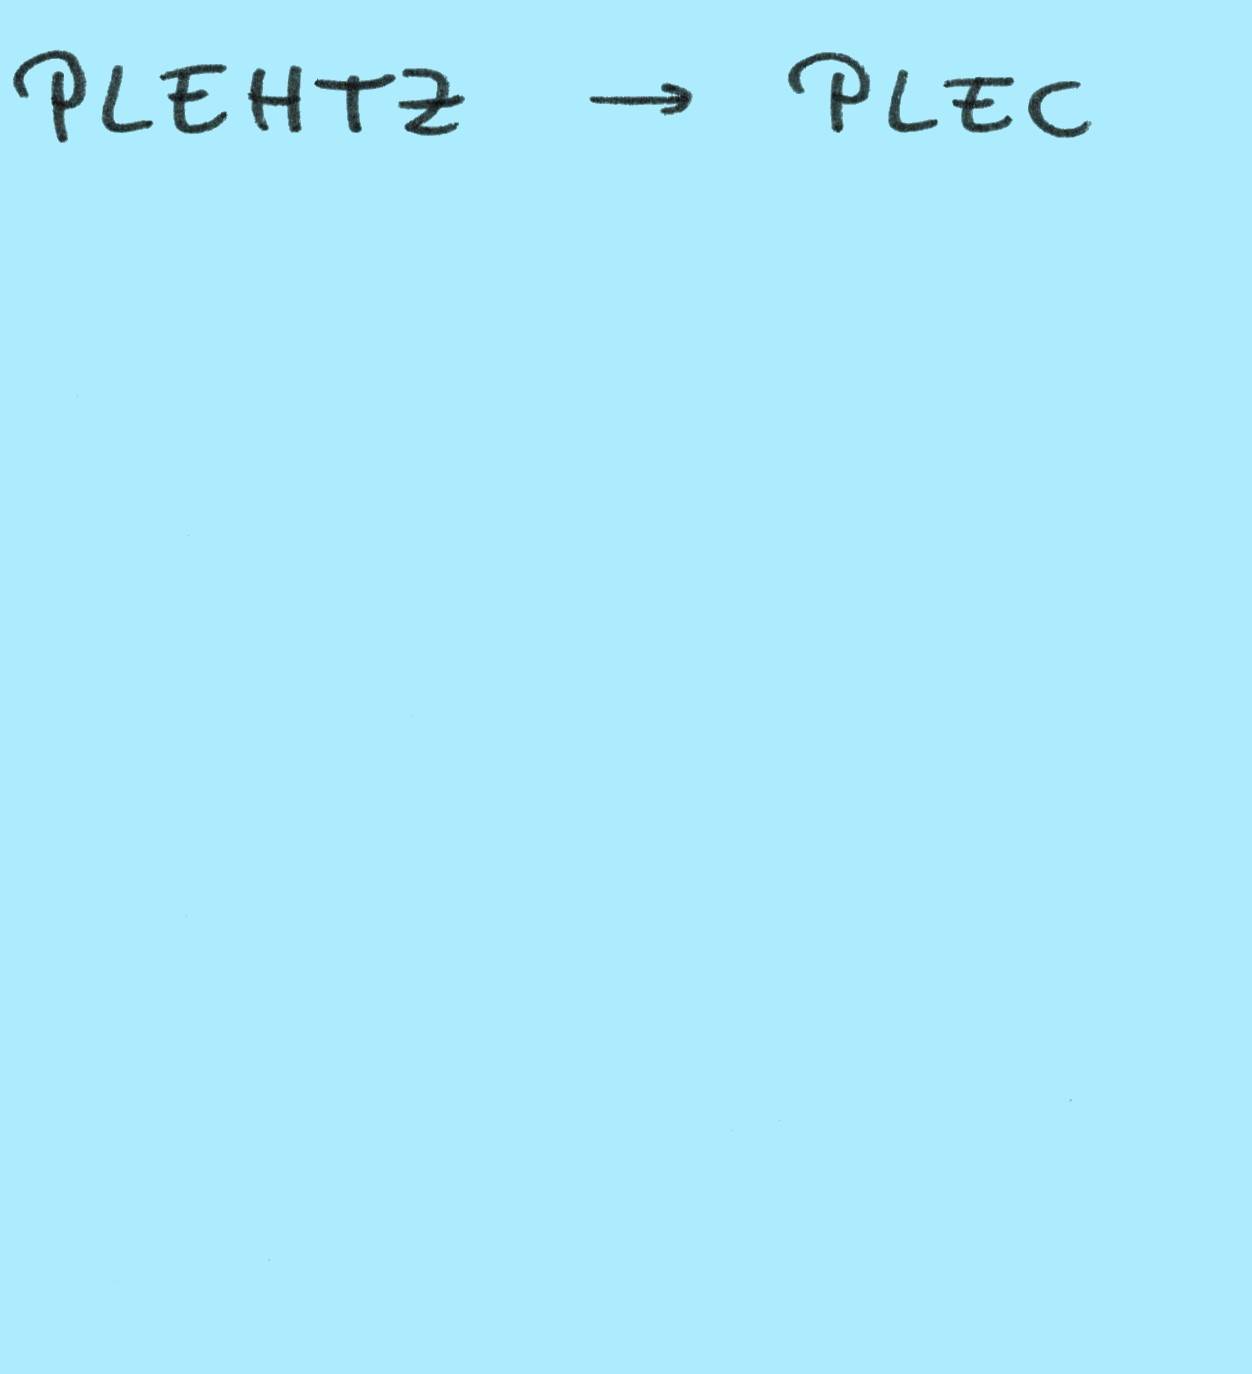 PLEHTZ → PLEC